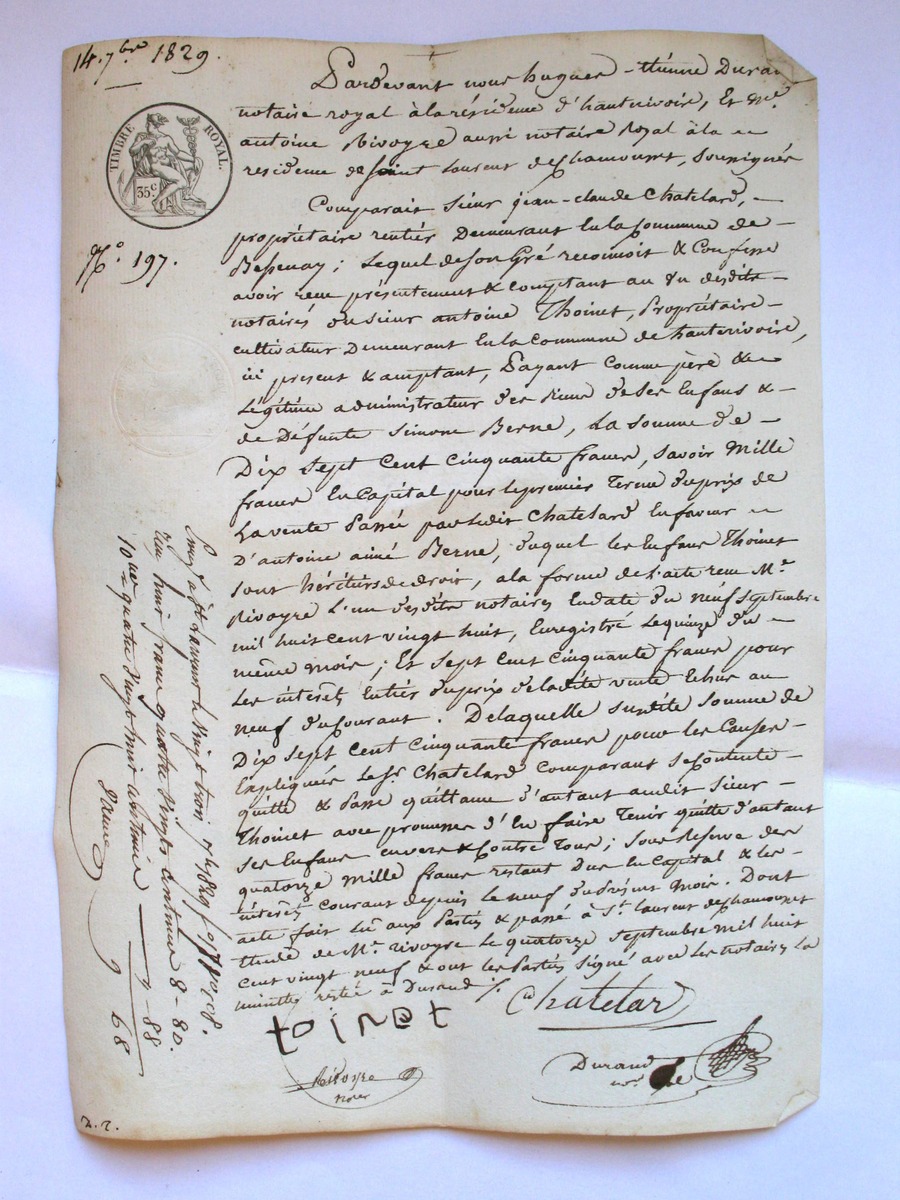 14. 7bre 1829.
TIMBRE ROYAL.
35c
No. 197.
Pardevant nous hugues-étienne Durand
notaire royal à la résidence d'hauterivoire, Et Me.
antoine Rivoyre aussi notaire Royal à la
residence de Saint Laurent de Chamousset, soussignés
Comparait sieur jean-claude Chatelard,
propriétaire rentier Demeurant En la Commune de
Bessenay; Lequel de son Gré reconnoit & Confesse
avoir recu présentement & comptant au vu desdits
notaires du sieur antoine Thoinet, Propriétaire
cultivateur Demeurant En la Commune de hauterivoire,
ici present & acceptant, Payant comme père &
Légitime administrateur des Biens de ses Enfans &
de Défunte Simone Berne, La somme de
Dix sept cent cinquante francs, savoir Mille
francs En Capital pour le premier Terme du prix de
La vente Passée par ledit Chatelard En faveur
D'antoine aimé Berne, duquel les Enfans Thoinet
sont héritiers de droit, a la forme de l'acte recu Me.
Rivoyre L'un desdits notaires En date du neuf septembre
mil huit cent vingt huit, Enregistré Le quinze du
même mois; Et sept cent cinquante francs pour
Les intérêts Entier du prix de ladite vente Echus au
neuf du Courant. De laquelle susdite somme de
Dix sept cent cinquante francs pour les Causes
Expliquées Le sr. Chatelard comparant se contente
quitte & Passe quittance d'autant audit sieur
Thoinet avec promesse d'En faire Tenir quitte d'autant
ses Enfans envers & Contre Tous; sous Réserve des
quatorze mille francs restant Dus En Capital & les
intérêts courant depuis le neuf du présent mois. Dont
acte fait Lu aux Parties & passé à St. Laurent de Chamousset
Etude de Me. Rivoyre Le quatorze septembre mil huit
cent vingt neuf & ont les Parties Signé avec les notaires La
minutte restée à Durand
toinet
Chatelard
Rivoyre
nore
Durand
8-80.
88
9 68